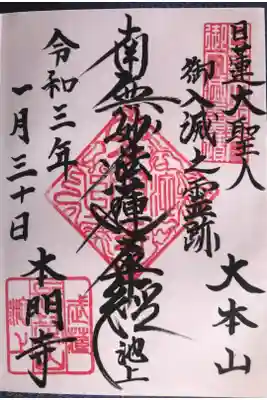 日蓮大聖人
御入滅之霊跡
大本山
池上
南無妙法蓮華経
令和三年
一月三十日
本門寺